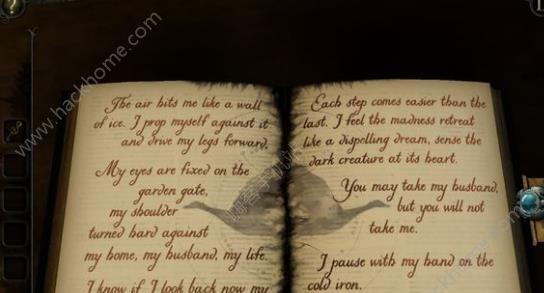 The air hits me like a wall
of ice. I prop myself against it
and drive my legs forward.
My eyes are fixed on the
garden gate,
my shoulder
turned hard against
my home, my husband, my life.
I know if I look back now my
Each step comes easier than the
last. I feel the madness retreat
like a dispelling dream, sense the
dark creature at its heart.
You may take my husband,
but you will not
take me.
I pause with my hand on the
cold iron.
?
www.hackhome.com